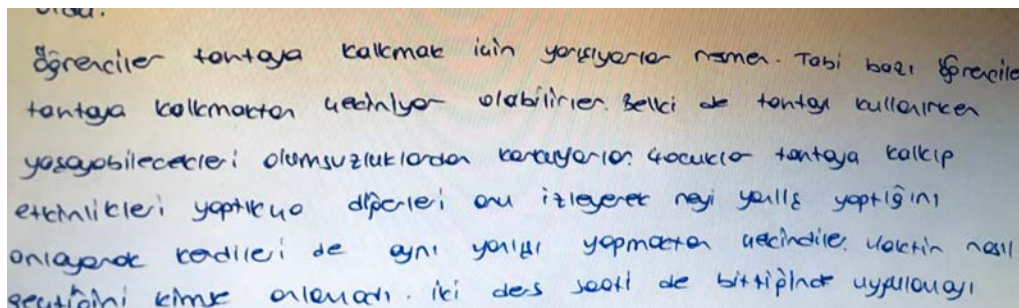 Öğrenciler tahtaya kalkmak için yarışıyorlar resmen. Tabi bazı öğrenciler
tahtaya kalkmaktan çekiniyor olabilirler. Belki de tahtayı kullanırken
yaşayabilecekleri olumsuzluklardan korkuyorlar. Çocuklar tahtaya kalkıp
etkinlikleri yaptıkça diğerleri onu izleyerek neyi yanlış yaptığını
anlayarak kendileri de aynı yanlışı yapmaktan çekindiler. Vaktin nasıl
geçtiğini kimse anlamadı. İki ders saati de bittiğinde uygulamayı